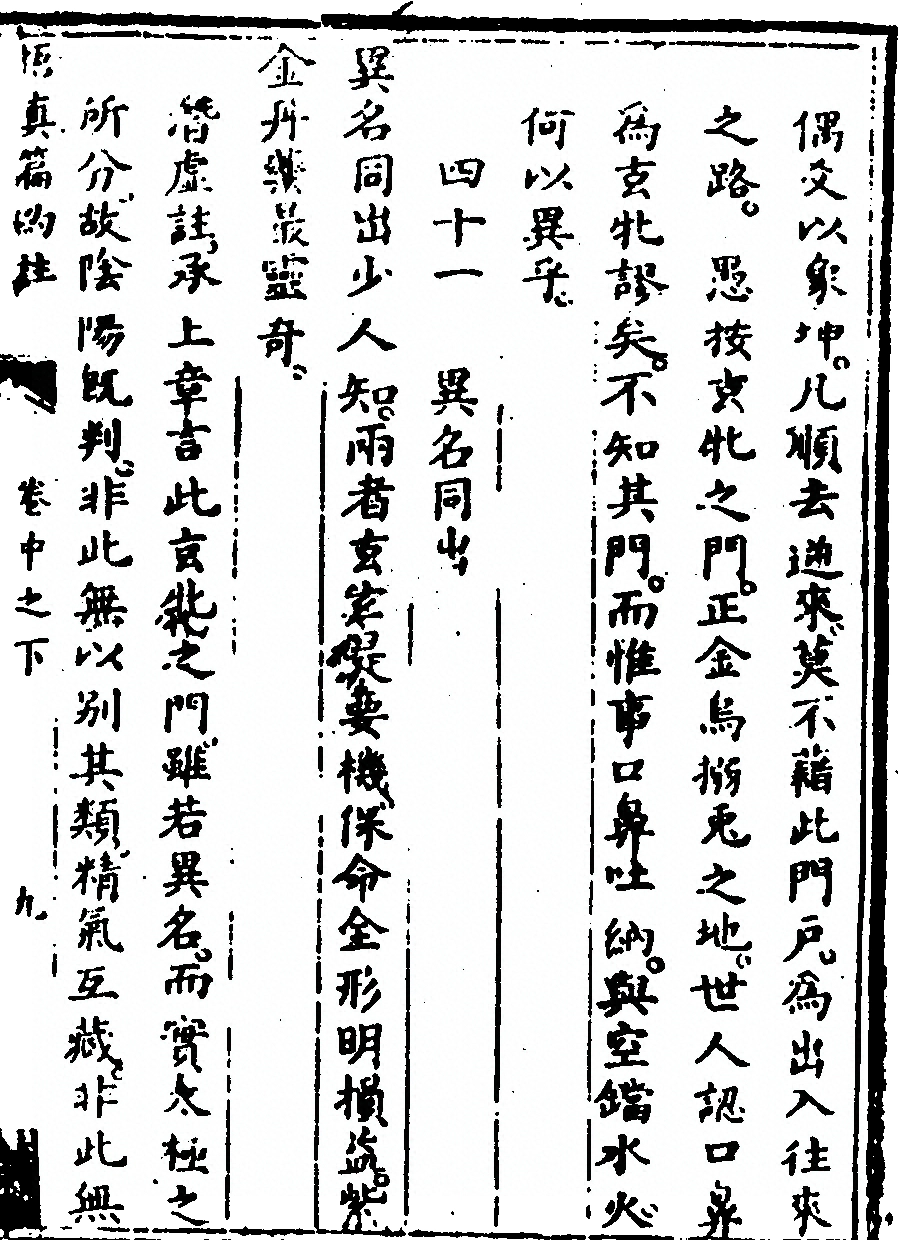 偶爻以象坤。凡順去逆來。莫不藉此門戶。為出入往來
之路。愚按玄牝之門。正金烏搦兎之地。世人認口鼻
為玄牝謬矣。不知其門。而惟事口鼻吐納。與空鐺水火。
何以異乎。
四十一 異名同出
異名同出少人知。兩者玄玄是要機。保命全形明損益。紫
金丹藥最靈奇。
潛虛註。承上章言此玄牝之門。雖若異名。而實太極之
所分。故陰陽既判。非此無以別其類。精氣互藏。非此無
悟真篇約註 卷中之下 九